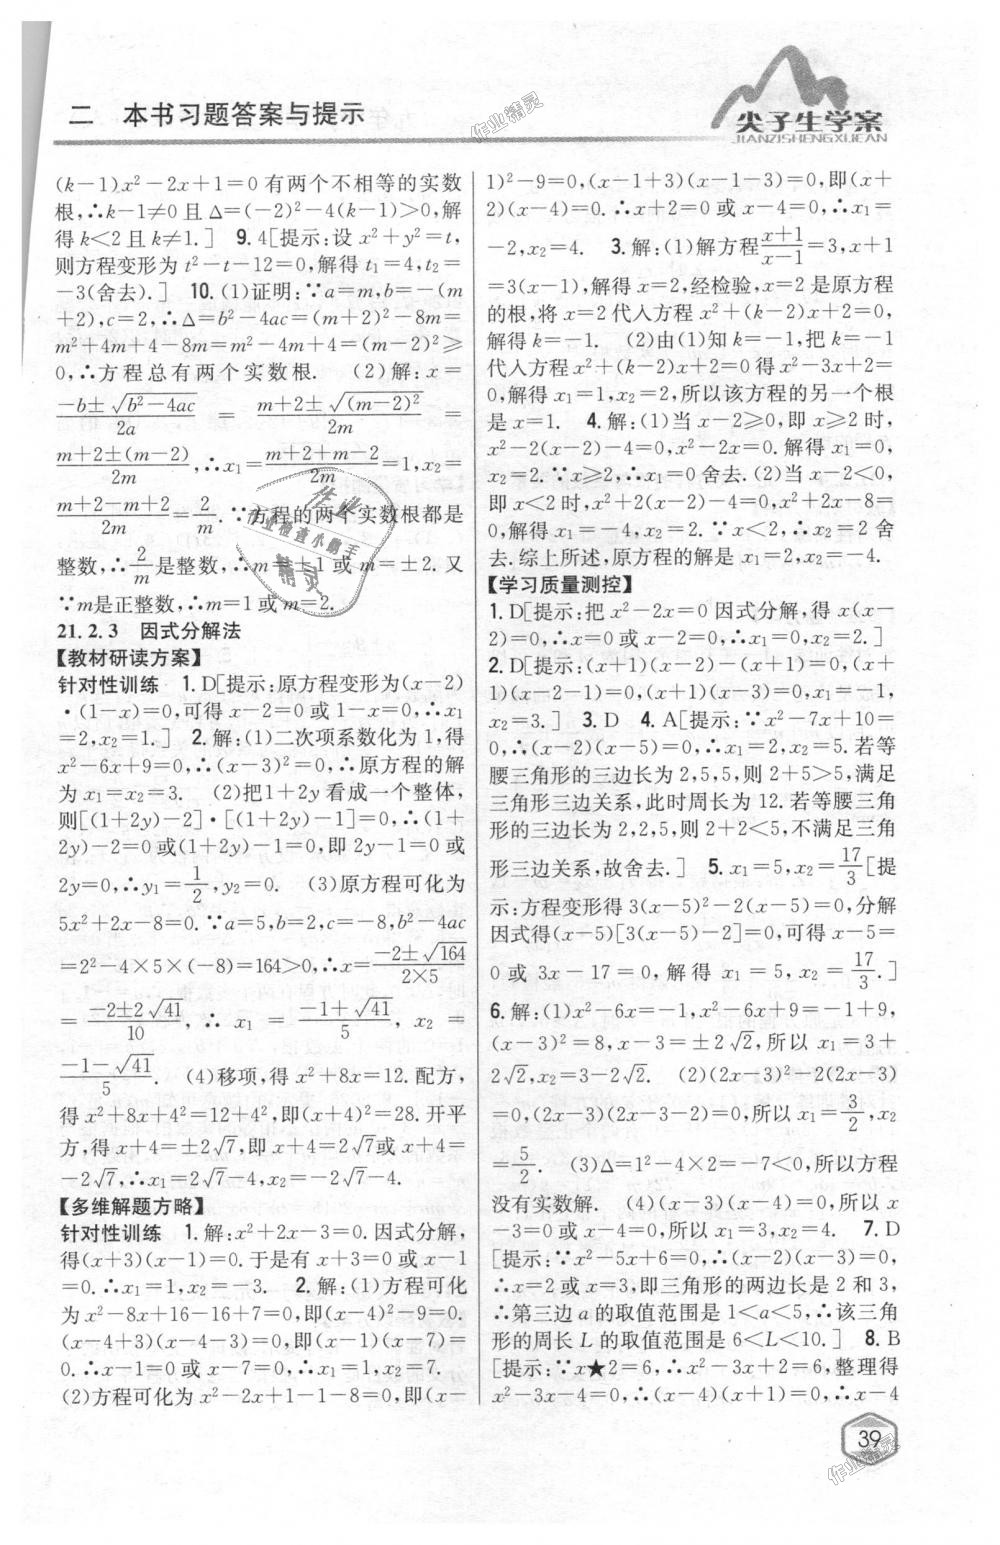 二 本书习题答案与提示
尖子生学案
JIANZISHENGXUEAN
(k－1)x²－2x＋1＝0有两个不相等的实数
根,∴k－1≠0且Δ＝(－2)²－4(k－1)>0,解
得k<2且k≠1.] 9.4[提示:设x²＋y²＝t,
则方程变形为t²－t－12＝0,解得t₁＝4,t₂＝
－3(舍去).] 10.(1)证明:∵a＝m,b＝－(m
＋2),c＝2,∴Δ＝b²－4ac＝(m＋2)²－8m＝
m²＋4m＋4－8m＝m²－4m＋4＝(m－2)²≥
0,∴方程总有两个实数根. (2)解:x＝
(－b±√(b²－4ac))/2a ＝ (m＋2±√((m－2)²))/2m ＝
(m＋2±(m－2))/2m,∴x₁＝(m＋2＋m－2)/2m＝1,x₂＝
(m＋2－m＋2)/2m＝2/m.∵方程的两个实数根都是
整数,∴2/m是整数,∴m＝±1或m＝±2.又
∵m是正整数,∴m＝1或m＝2.
21.2.3 因式分解法
【教材研读方案】
针对性训练 1.D[提示:原方程变形为(x－2)
·(1－x)＝0,可得x－2＝0或1－x＝0,∴x₁
＝2,x₂＝1.] 2.解:(1)二次项系数化为1,得
x²－6x＋9＝0,∴(x－3)²＝0,∴原方程的解
为x₁＝x₂＝3. (2)把1＋2y看成一个整体,
则[(1＋2y)－2]·[(1＋2y)－1]＝0,∴(1＋
2y)－2＝0或(1＋2y)－1＝0,即2y－1＝0或
2y＝0,∴y₁＝1/2,y₂＝0. (3)原方程可化为
5x²＋2x－8＝0.∵a＝5,b＝2,c＝－8,b²－4ac
＝2²－4×5×(－8)＝164>0,∴x＝(－2±√164)/(2×5)
＝(－2±2√41)/10,∴x₁＝(－1＋√41)/5,x₂＝
(－1－√41)/5. (4)移项,得x²＋8x＝12.配方,
得x²＋8x＋4²＝12＋4²,即(x＋4)²＝28.开平
方,得x＋4＝±2√7,即x＋4＝2√7或x＋4＝
－2√7,∴x₁＝2√7－4,x₂＝－2√7－4.
【多维解题方略】
针对性训练 1.解:x²＋2x－3＝0.因式分解,
得(x＋3)(x－1)＝0.于是有x＋3＝0或x－1
＝0.∴x₁＝1,x₂＝－3. 2.解:(1)方程可化
为x²－8x＋16－16＋7＝0,即(x－4)²－9＝0.
(x－4＋3)(x－4－3)＝0,即(x－1)(x－7)＝
0.∴x－1＝0或x－7＝0,∴x₁＝1,x₂＝7.
(2)方程可化为x²－2x＋1－1－8＝0,即(x－
1)²－9＝0,(x－1＋3)(x－1－3)＝0,即(x＋
2)(x－4)＝0.∴x＋2＝0或x－4＝0,∴x₁＝
－2,x₂＝4. 3.解:(1)解方程(x＋1)/(x－1)＝3,x＋1
＝3(x－1),解得x＝2,经检验,x＝2是原方程
的根,将x＝2代入方程x²＋(k－2)x＋2＝0,
解得k＝－1. (2)由(1)知k＝－1,把k＝－1
代入方程x²＋(k－2)x＋2＝0得x²－3x＋2＝
0,解得x₁＝1,x₂＝2,所以该方程的另一个根
是x＝1. 4.解:(1)当x－2≥0,即x≥2时,
x²－2(x－2)－4＝0,x²－2x＝0.解得x₁＝0,
x₂＝2.∵x≥2,∴x₁＝0舍去.(2)当x－2<0,
即x<2时,x²＋2(x－2)－4＝0,x²＋2x－8＝
0,解得x₁＝－4,x₂＝2.∵x<2,∴x₂＝2舍
去.综上所述,原方程的解是x₁＝2,x₂＝－4.
【学习质量测控】
1.D[提示:把x²－2x＝0因式分解,得x(x－
2)＝0,∴x＝0或x－2＝0,∴x₁＝0,x₂＝2.]
2.D[提示:(x＋1)(x－2)－(x＋1)＝0,(x＋
1)(x－2－1)＝0,(x＋1)(x－3)＝0,x₁＝－1,
x₂＝3.] 3.D 4.A[提示:∵x²－7x＋10＝
0,∴(x－2)(x－5)＝0,∴x₁＝2,x₂＝5.若等
腰三角形的三边长为2,5,5,则2＋5>5,满足
三角形三边关系,此时周长为12.若等腰三角
形的三边长为2,2,5,则2＋2<5,不满足三角
形三边关系,故舍去.] 5.x₁＝5,x₂＝17/3[提
示:方程变形得3(x－5)²－2(x－5)＝0,分解
因式得(x－5)[3(x－5)－2]＝0,可得x－5＝
0或3x－17＝0,解得x₁＝5,x₂＝17/3.]
6.解:(1)x²－6x＝－1,x²－6x＋9＝－1＋9,
(x－3)²＝8,x－3＝±2√2,所以x₁＝3＋
2√2,x₂＝3－2√2. (2)(2x－3)²－2(2x－3)
＝0,(2x－3)(2x－3－2)＝0,所以x₁＝3/2,x₂
＝5/2. (3)Δ＝1²－4×2＝－7<0,所以方程
没有实数解. (4)(x－3)(x－4)＝0,所以x
－3＝0或x－4＝0,所以x₁＝3,x₂＝4. 7.D
[提示:∵x²－5x＋6＝0,∴(x－2)(x－3)＝0,
∴x＝2或x＝3,即三角形的两边长是2和3,
∴第三边a的取值范围是1<a<5,∴该三角
形的周长L的取值范围是6<L<10.] 8.B
[提示:∵x★2＝6,∴x²－3x＋2＝6,整理得
x²－3x－4＝0,∴(x－4)(x＋1)＝0,∴x－4
39
作业精灵
作业
作业检查小帮手
精灵
作业精灵